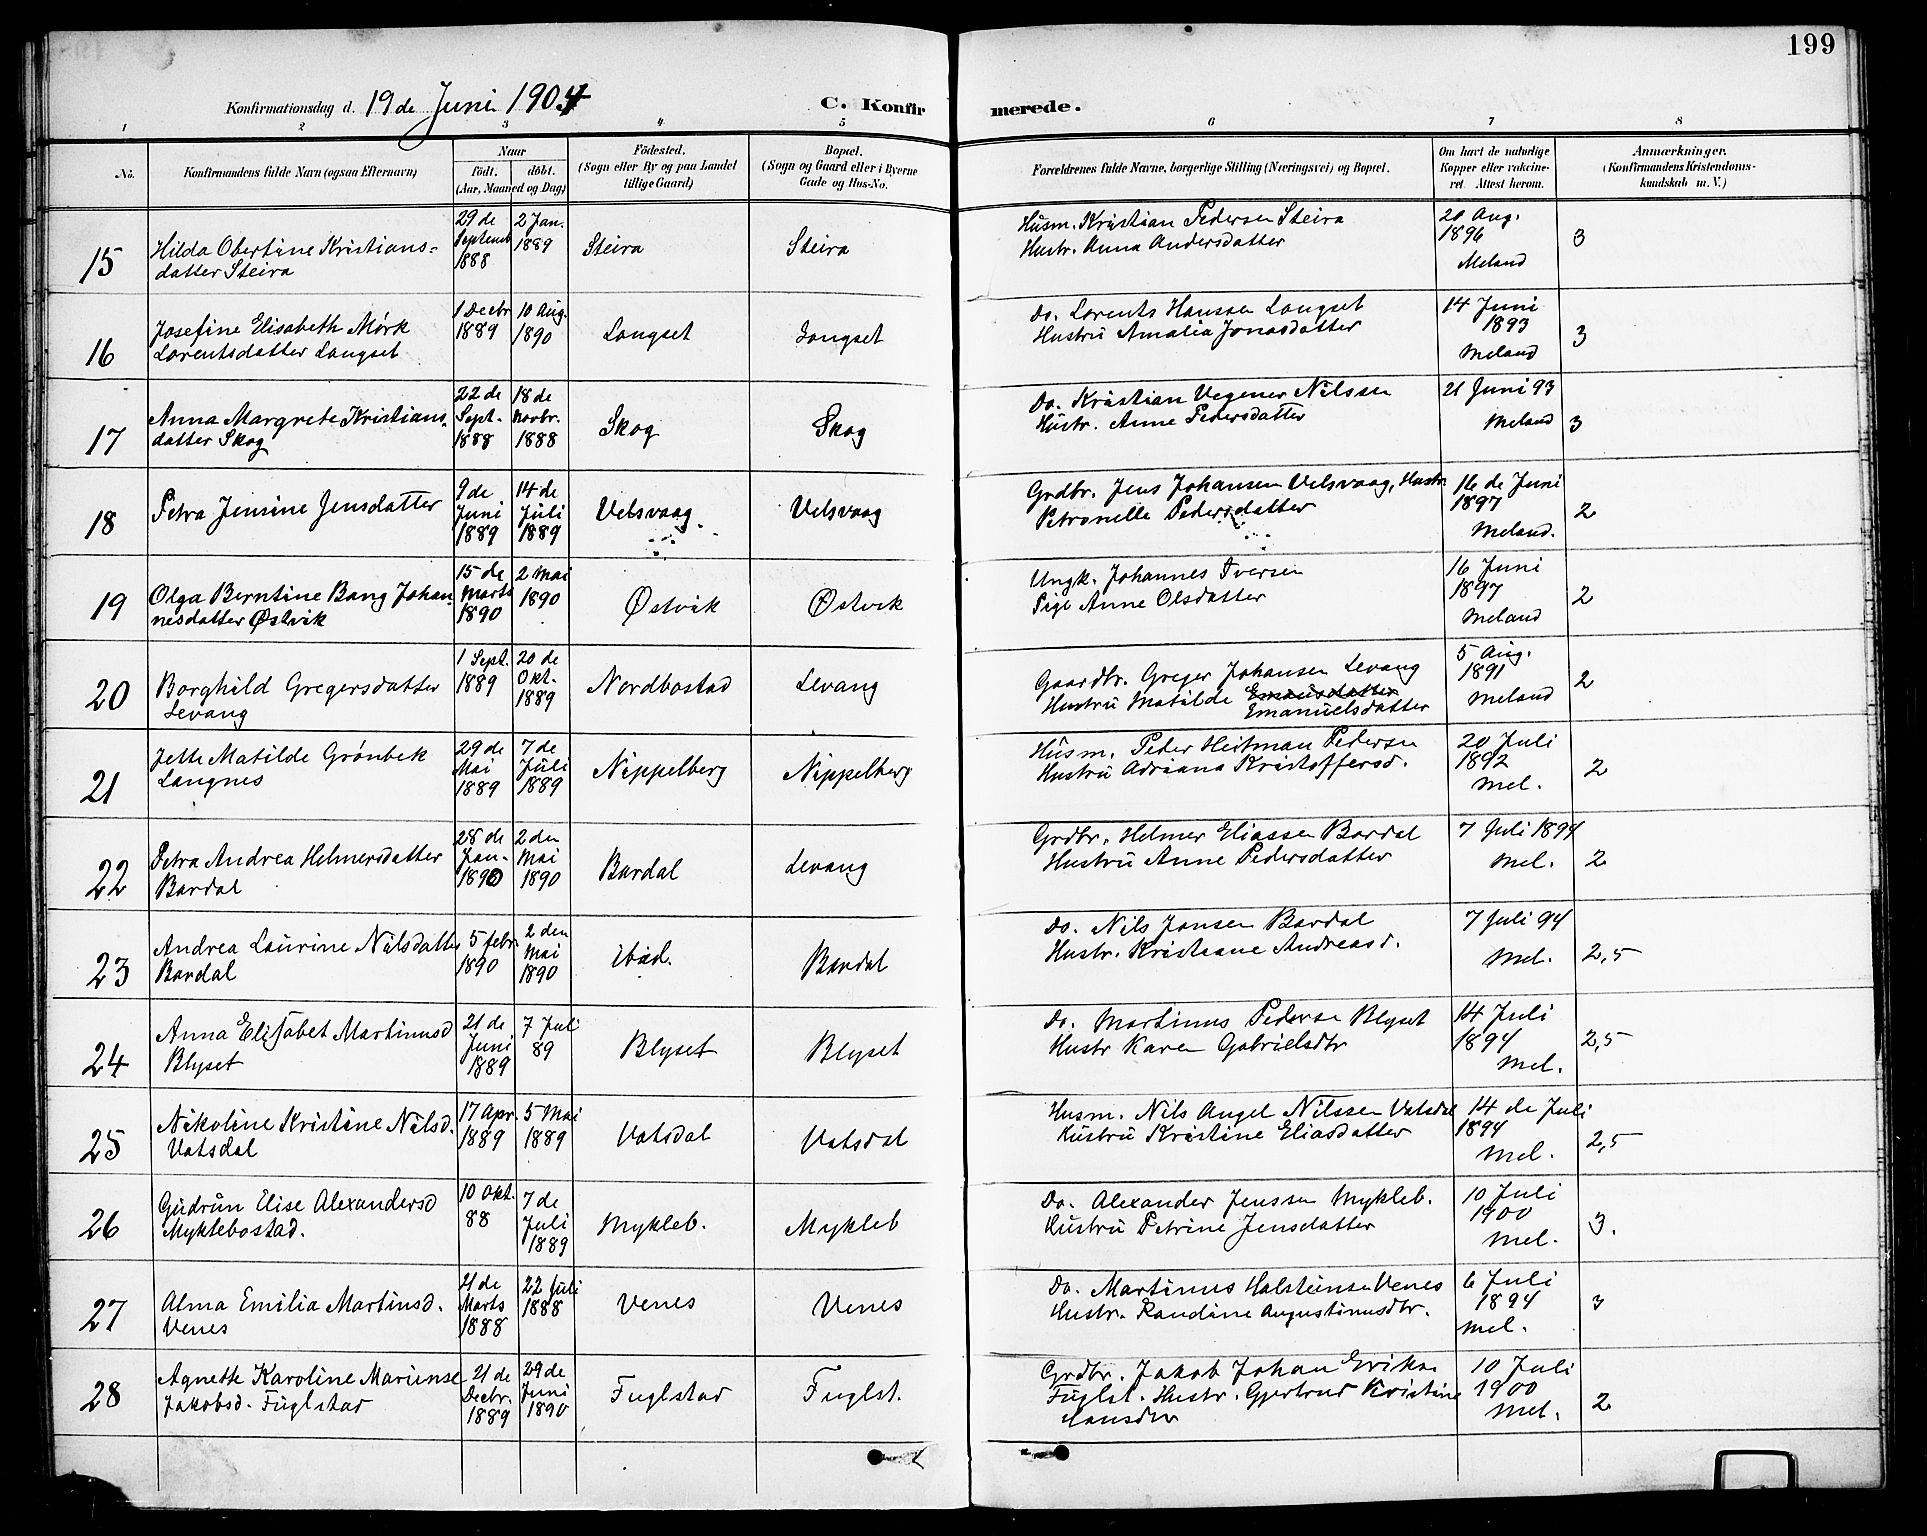 199
Konfirmationsdag d. 19 de Juni 1904
C. Konfirmerede.
1 2 3 4 5 6 7 8
No.
Konfirmandens fulde Navn (ogsaa Efternavn)
Naar
födt. döbt.
(Aar, Maaned og Dag)
Födested.
(Sogn eller By og paa Landet
tillige Gaard)
Bopæl.
(Sogn og Gaard eller i Byerne
Gade og Hus-No.
Forældrenes fulde Navne, borgerlige Stilling (Næringsvei) og Bopæl.
Om havt de naturlige
Kopper eller vakcine-
ret. Attest herom.
Anmærkninger.
(Konfirmandens Kristendoms-
kundskab m. V.)
15
Hilda Obertine Kristians-
datter Steira
29 de
Septemb
1888
2 Jan.
1889
Steira
Steira
Husm. Kristian Pedersen Steira
Hustr. Anna Andersdatter
20 Aug.
1896
Meland
3
16
Josefine Elisabeth Mørk
Lorentsdatter Langset
1 Decbr
1889
10 Aug.
1890
Langset
Langset
Do. Lorents Hanssen Langset
Hustru Amalia Jonasdatter
14 Juni
1893
Meland
3
17
Anna Margrete Kristians-
datter Skog
22 de
Sept.
1888
18 de
Novbr.
1888
Skog
Skog
Do. Kristian Vegener Nilssen
Hustr. Anne Pedersdatter
21 Juni 93
Meland
3
18
Petra Jensine Jensdatter
9 de
Juni
1889
14 de
Juli
1889
Velsvaag
Velsvaag
Grdbr. Jens Johansen Velsvaag, Hustr.
Petronelle Pedersdatter
16 de Juni
1897
Meland.
2
19
Olga Berntine Bang Johan-
nesdatter Østvik
15 de
Marts
1890
2 Mai
1890
Østvik
Østvik
Ungk. Johannes Iversen
Pige Anne Olsdatter
16 Juni
1897
Meland
2
20
Borghild Gregersdatter
Levang
1 Sept.
1889
20 de
Okt.
1889
Nordbostad
Levang
Gaardbr. Greger Johansen Levang
Hustru Matilde Emansdatter
Emanuelsdatter
5 Aug.
1891
Meland
2
21
Jette Matilde Grønbek
Langnes
29 de
Mai
1889
7 de
Juli
1889
Nippelberg
Nippelberg
Husm. Peder Heitman Pedersen
Hustru Adriana Kristoffersd.
20 Juli
1892
Mel.
2
22
Petra Andrea Helmersdatter
Bardal
28 de
Jan-
1890
2 den
Mai
1890
Bardal
Levang
Grdbr. Helmer Eliassen Bardal
Hustru Anne Pedersdatter
7 Juli 1894
Mel.
2
23
Andrea Laurine Nilsdatter
Bardal
5 febr.
1890
2 den
Mai
1890
ibid.
Bardal
Do. Nils Jansen Bardal
Hustr. Kristiane Andreasd.
7 Juli 94
Mel.
2,5
24
Anna Elisabet Martinusd
Blyset
21 de
Juni
1889
7 Juli
89
Blyset
Blyset
Do. Martinus Pederse Blyset
Hustr Karen Gabrielsdtr
14 Juli
1894
Mel.
2,5
25
Nikoline Kristine Nilsd.
Vatsdal
17 Apr.
1889
5 Mai
1889
Vatsdal
Vatsdal
Husm. Nils Angel Nilssen Vatsdal
Hustru Kristine Eliasdatter
14 de Juli
1894
Mel.
2,5
26
Gudrun Elise Alexandersd
Myklebostad.
10 Okt.
88
7 de
Juli
1889
Mykleb.
Mykleb
Do. Alexander Jenssen Mykleb.
Hustru Petrine Jensdatter
10 Juli
1900
Mel.
3.
27
Alma Emilia Martinsd.
Venes
21 de
Marts
1888
22 Juli
1888
Venes
Venes
Do. Martinus Halsteinsen Venes
Hustr. Randine Augustinusdtr.
6 Juli
1894
Mel.
3
28
Agnette Karoline Mariense
Jakobsd. Fuglstad
21 de
Decbr.
1889
29 de
Juni
1890
Fuglstad
Fuglst.
Grdbr. Jakob Johan Eriks.
Fuglst. Hustr. Gjertrud Kristine
Hansdtr
10 Juli
1900
Mel.
2